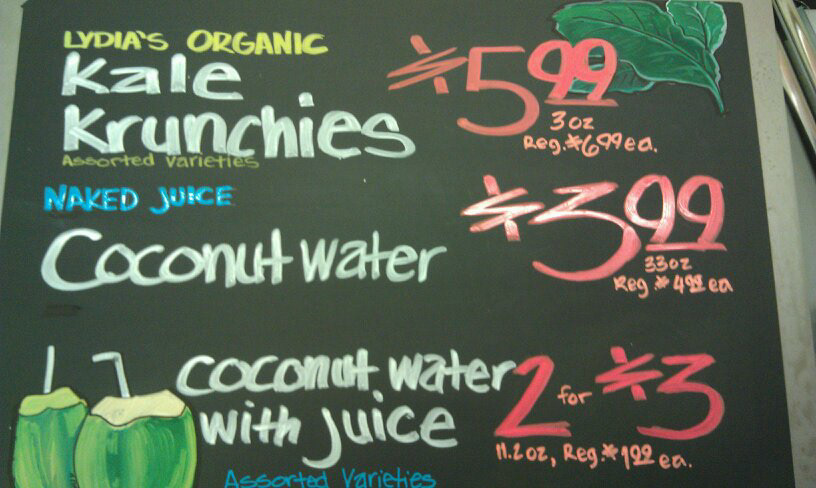 LYDIA'S ORGANIC
Kale
Krunchies
Assorted Varieties
$5.99
3 oz
Reg. $6.99 ea.
NAKED JUICE
Coconut water
$3.99
33 oz
Reg. $4.99 ea
coconut water
with juice
Assorted Varieties
2 for $3
11.2 oz, Reg. $1.99 ea.